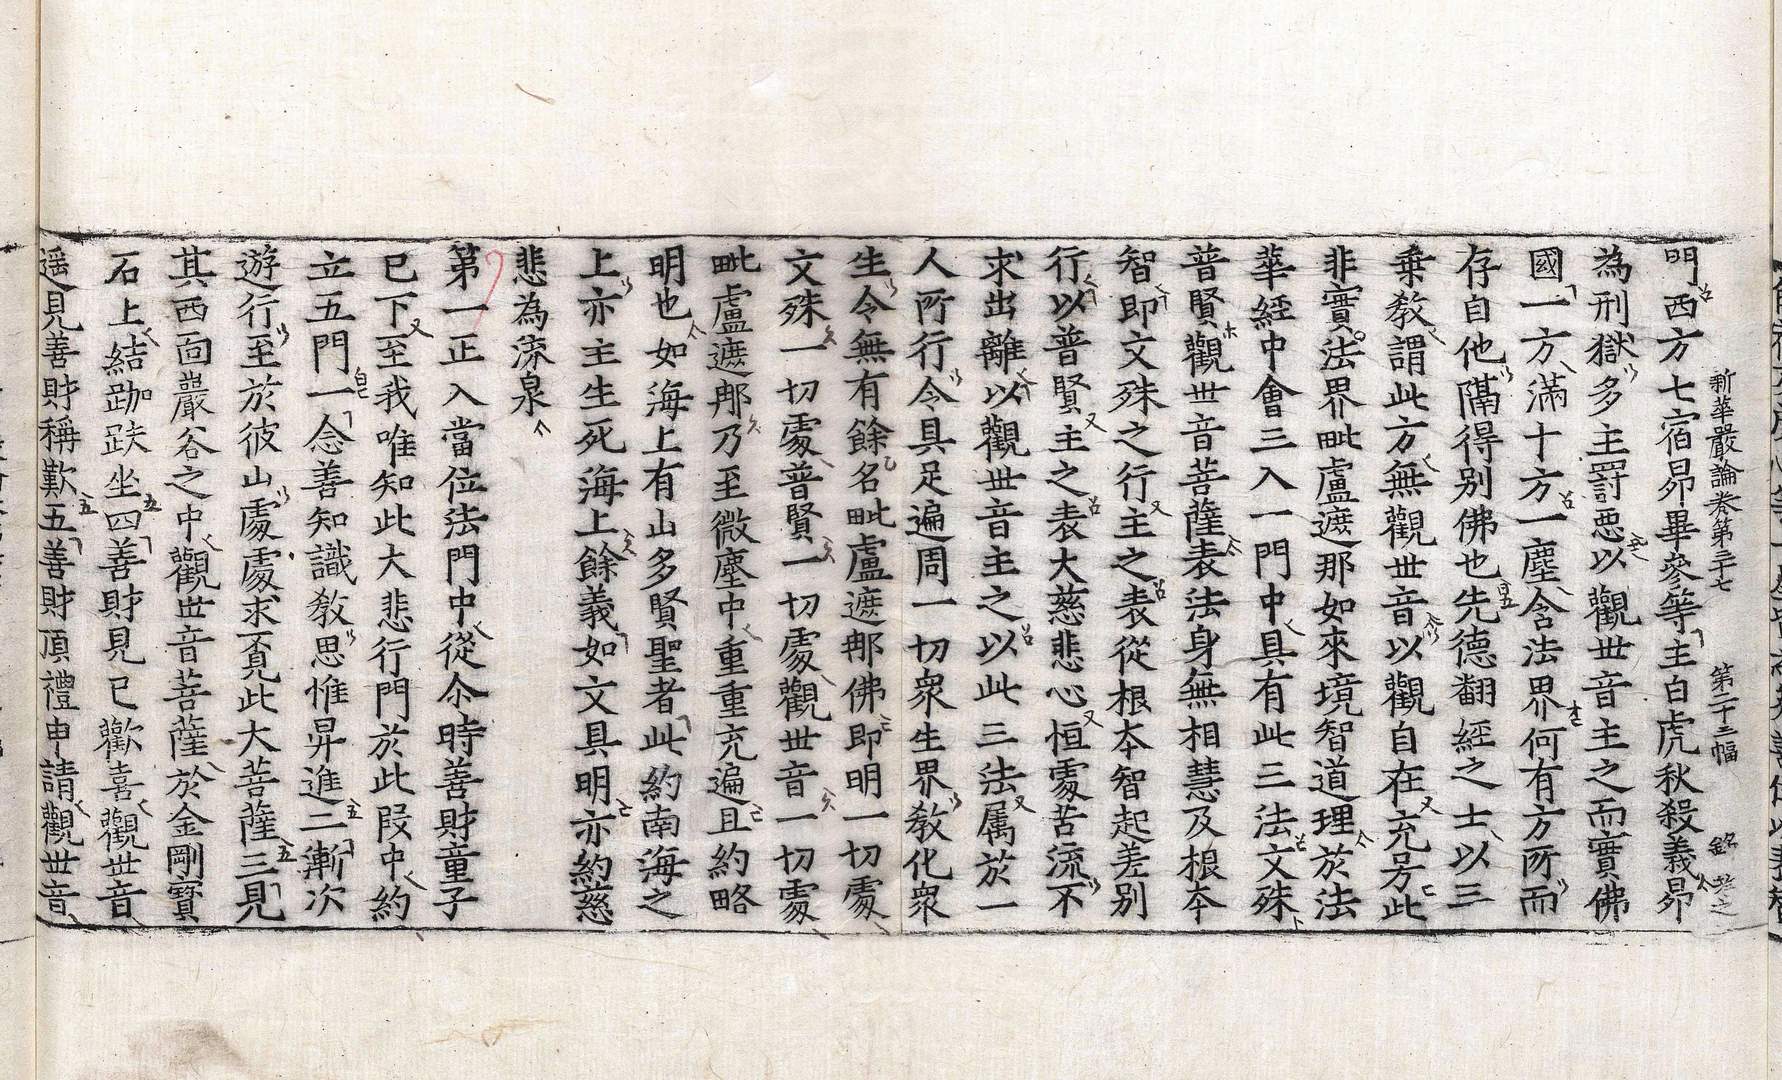 新華嚴論卷第三十七 第二十三幅
門西方七宿昴畢參等主白虎秋殺義昴
為刑獄多主罸惡以觀世音主之而實佛
國一方滿十方一塵含法界何有方所而
存自他隔得别佛也先德翻經之士以三
乗敎謂此方無觀世音以觀自在充另此
非實法界毗盧遮那如來境智道理於法
華經中會三入一門中具有此三法文殊
普賢觀世音菩薩表法身無相慧及根夲
智即文殊之行主之表從根夲智起差别
行以普賢主之表大慈悲心恒處苦流不
求出離以觀世音主之以此三法属於一
人所行行令具足遍周一切衆生界敎化衆
生令無有餘名毗盧遮那佛即明一切處
文殊一切處普賢一切處觀世音一切處
毗盧遮那乃至微塵中重重充遍且約略
明也如海上有山多賢聖者此約南海之
上亦主生死海上餘義如文具明亦約慈
悲為㳽泉
第一正入當位法門中從尒時善財童子
已下至我唯知此大悲行門於此段中約
立五門一念善知識敎思惟昇進二漸次
遊行至於彼山處處求覔此大菩薩三見
其西面巖谷之中觀世音菩薩於金剛寶
石上結跏趺坐四善財見已歡喜觀世音
遥見善財稱歎五善財頂禮申請觀世音